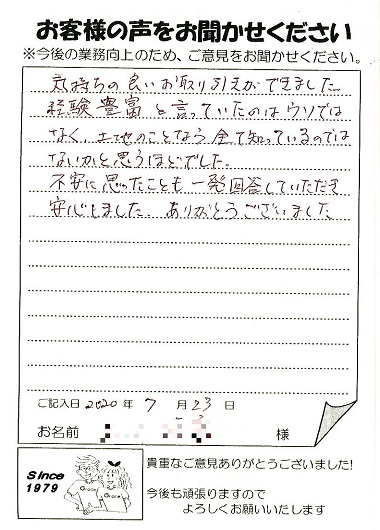 お客様の声をお聞かせください
※今後の業務向上のため、ご意見をお聞かせください。
気持ちの良いお取り引きができました。
経験豊富と言っていたのはウソでは
なく、土地のことなら全て知っているのでは
ないかと思うほどでした。
不安に思ったことも一発回答していただき
安心しました。ありがとうございました。
ご記入日 2020 年 7 月 23 日
お名前 様
Since
1979
貴重なご意見ありがとうございました!
今後も頑張りますので
よろしくお願いいたします